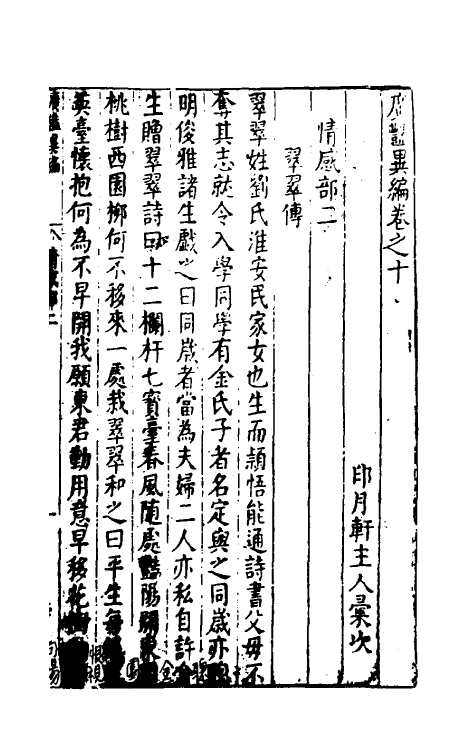 廣豔異編卷之十
印月軒主人彙次
情感部二
翠翠傳
翠翠姓劉氏淮安民家女也生而頴悟能通詩書父毋不
奪其志就令入學同學有金氏子者名定與之同歲亦
明俊雅諸生戲之曰同歲者當為夫婦二人亦私自許
生贈翠翠詩曰十二欄杆七寳臺春風隨處豔陽
桃樹西園栁何不移來一處栽翠翠和之曰平生每
英臺懷抱何為不早開我願東君勤用意早移花